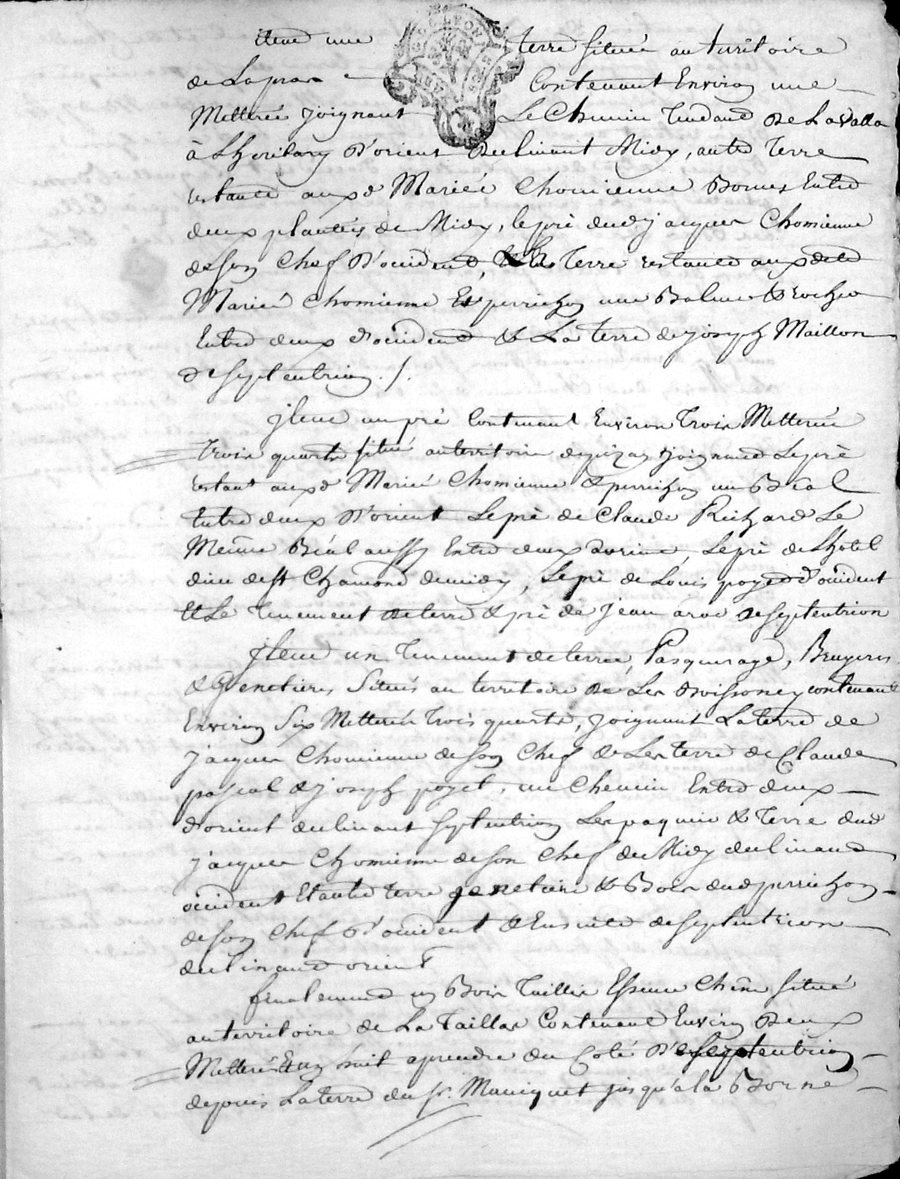 item une terre située au territoire
de Lapras contenant Environ une
Metterée joignant Le Chemin Tendant de Lavalla
à d'orient declinant Midy, autre Terre
restante aux d. Mariés Chomienne Bornes Entre
deux plantées de Midy, le pré dud. jacques Chomienne
de son Chef d'occident, & La Terre restante aux de
Mariés Chomienne Et perrichon une Balme & rocher
Entre deux d'occident & La terre de joseph Maillon
de septentrion ./.
jtem un pré Contenant Environ Trois Metterée
Trois quarts situé au territoire de pizay joignand Le pré
restant aux d. Mariés Chomienne & perrichon un Béal
Entre deux d'orient Le pré de Claude Richard Le
Meême Béal aussy Entre deux Le pré de Lhotel
dieu de St Chamond de midy, Le pré de Louis poyed d'occident
Et Le Tenement de terre & pré de jean de septentrion
jtem un Tenement de terre, Pasquerage, Bruyeres
& Genetieres Situés au territoire de Les contenant
Environ Six Metterée Trois quarts, joignant La terre de
jacques Chomienne de son Chef & Les terre de Claude
pascal & joseph poyet, un Chemin Entre deux
d'orient declinant septentrion Les paquis & Terre dud.
jacques Chomienne de son Chef de Midy declinand
occident Et autre terre genetiere & Bois dud. perrichon
de son Chef d'occident & Ensuite de septentrion
declinand orient
finalement un Bois Taillis Essence Chêne situé
au territoire de La Taillas Contenant Environ Deux
Metterée Et un huit aprendre du Coté De septentrion
depuis La terre du sr. jusqu'a la Borne